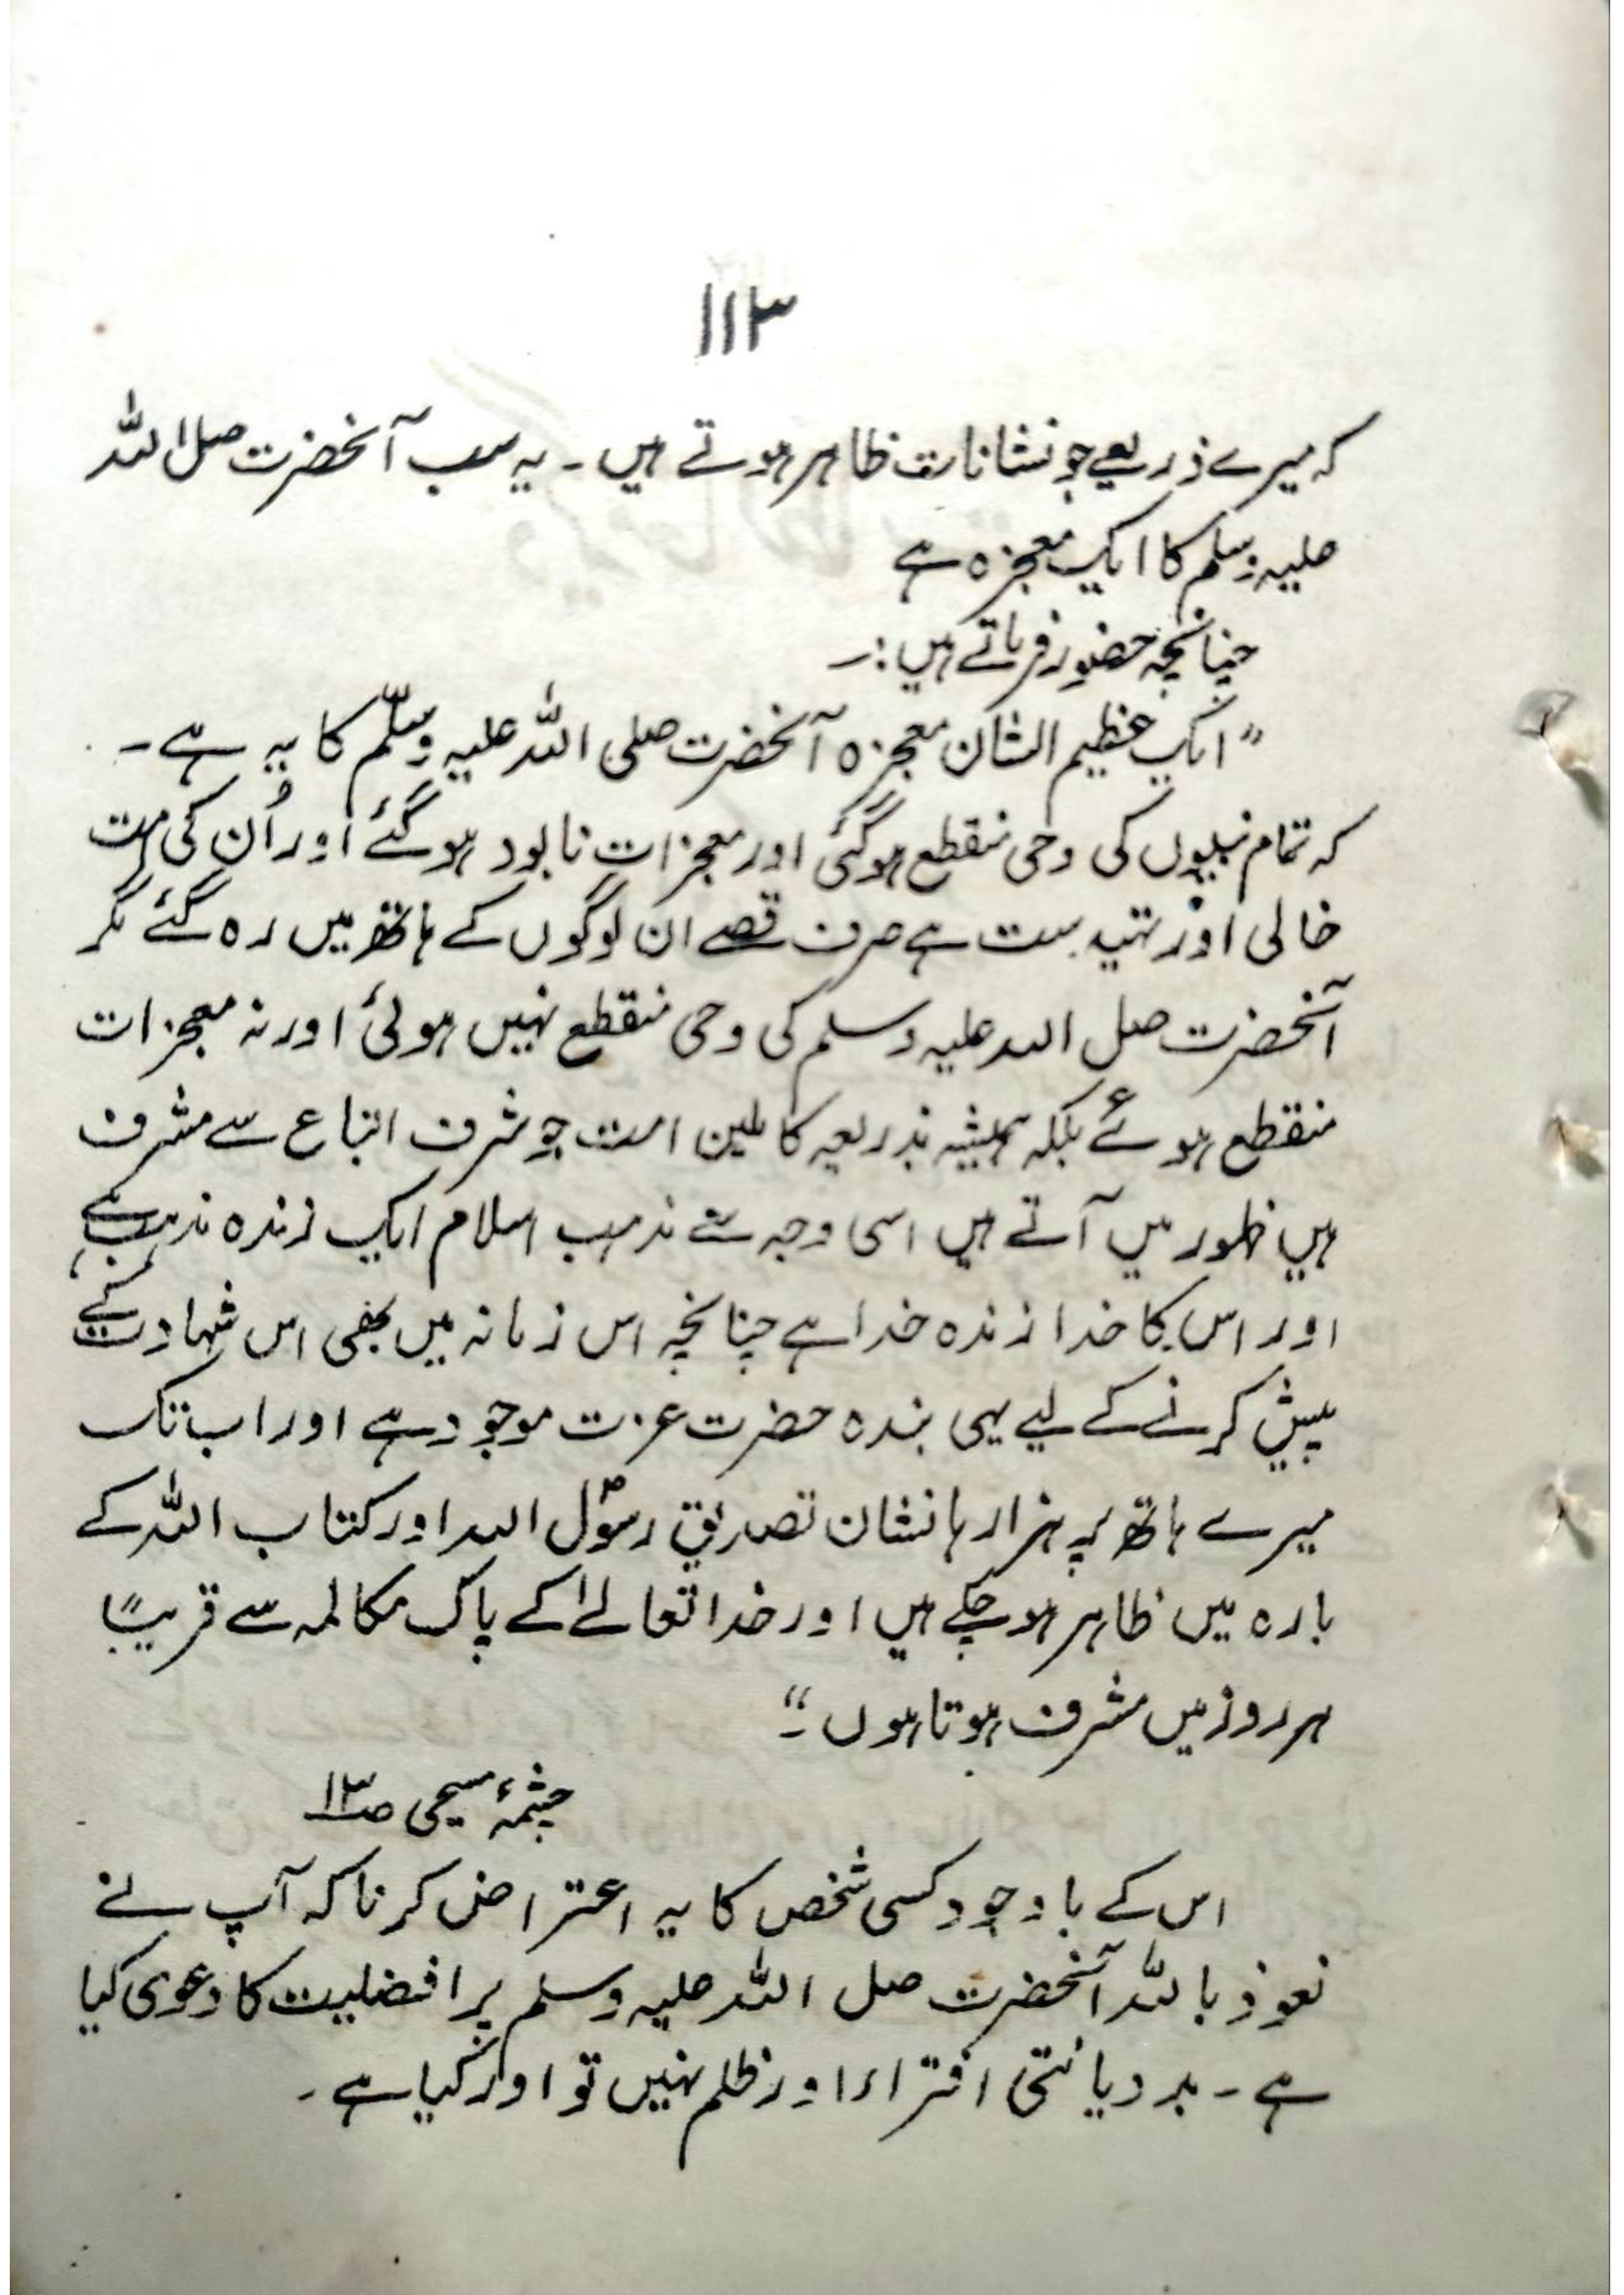 ۱۱۳
کہ میرے ذریعے جو نشانات ظاہر ہوتے ہیں ۔ یہ سب آنحضرت صلی اللہ
علیہ وسلم کا ایک معجزہ ہے
چنانچہ حضور فرماتے ہیں :۔
” ایک عظیم الشان معجزہ آنحضرت صلی اللہ علیہ وسلّم کا یہ ہے ۔
کہ تمام نبیوں کی وحی منقطع ہوگئی اور معجزات نابود ہوگئے اور اُن کی امت
خالی اور تہیدست ہے صرف قصے ان لوگوں کے ہاتھ میں رہ گئے مگر
آنحضرت صلی اللہ علیہ وسلم کی وحی منقطع نہیں ہوئی اور نہ معجزات
منقطع ہوئے بلکہ ہمیشہ بذریعہ کاملین امت جو شرف اتباع سے مشرف
ہیں ظہور میں آتے ہیں اسی وجہ سے مذہب اسلام ایک زندہ مذہب ہے
اور اس کا خدا زندہ خدا ہے چنانچہ اس زمانہ میں بھی اس شہادت کے
پیش کرنے کے لیے یہی بندہ حضرت عزت موجود ہے اور اب تک
میرے ہاتھ پر ہزارہا نشان تصدیق رسولؐ اللہ اور کتاب اللہ کے
بارہ میں ظاہر ہوچکے ہیں اور خدا تعالےٰ کے پاک مکالمہ سے قریباً
ہر روز میں مشرف ہوتا ہوں ۔“
چشمۂ مسیحی صـ۱۳
اس کے باوجود کسی شخص کا یہ اعتراض کرنا کہ آپ نے
نعوذ باللہ آنحضرت صلی اللہ علیہ وسلم پر افضلیت کا دعوی کیا
ہے ۔ بد دیانتی افتراء اور ظلم نہیں تو اور کیا ہے ۔